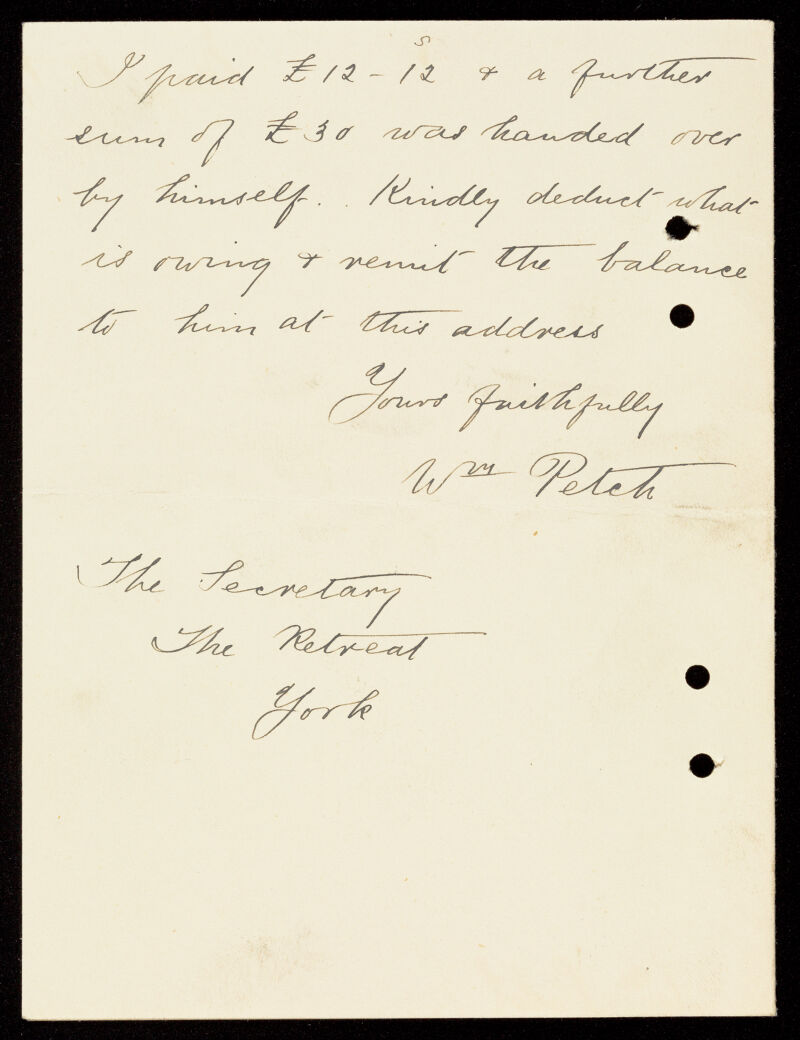 I paid £12-12s & a further
sum of £30 was handed over
by himself. Kindly deduct what
is owing & remit the balance
to him at this address
Yours faithfully
Wm Petch
The Secretary
The Retreat
York